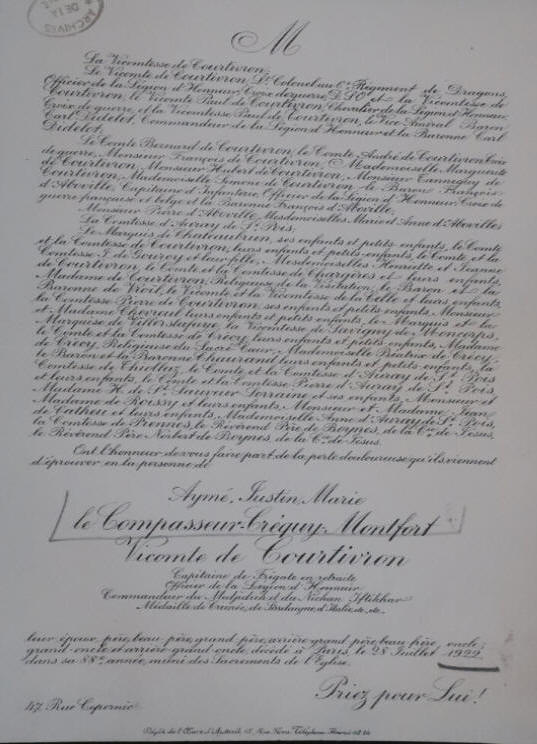 ARCHIVES
DE LA
M
La Vicomtesse de Courtivron,
Le Vicomte de Courtivron, Lt Colonel au Régiment de Dragons,
Officier de la Légion d'Honneur, Croix de guerre, D.S.O. et la Vicomtesse de
Courtivron, le Vicomte Paul de Courtivron, Chevalier de la Légion d'Honneur,
Croix de guerre, et la Vicomtesse Paul de Courtivron, le Vice-Amiral Baron
Carl Didelot, Commandeur de la Légion d'Honneur et la Baronne Carl
Didelot,
Le Comte Bernard de Courtivron, le Comte André de Courtivron, Croix
de guerre, Monsieur François de Courtivron, Mademoiselle Marguerite
de Courtivron, Monsieur Hubert de Courtivron, Monsieur Tanneguy de
Courtivron, Mademoiselle Simone de Courtivron, le Baron François
d'Aboville, Capitaine d'Infanterie, Officier de la Légion d'Honneur, Croix de
guerre française et belge et la Baronne François d'Aboville,
Monsieur Pierre d'Aboville, Mesdemoiselles Marie et Anne d'Aboville,
La Comtesse d'Auray de St Pois,
Le Marquis de Chateaubrun, ses enfants et petits enfants, le Comte
et la Comtesse de Courtivron, leurs enfants et petits enfants, le Comte et la
Comtesse J. de Gouvoy et leur fille, Mesdemoiselles Henriette et Jeanne
de Courtivron, le Comte et la Comtesse de Chargères et leurs enfants,
Madame de Courtivron, Religieuse de la Visitation, le Baron et la
Baronne de Vroil, le Vicomte et la Vicomtesse de la Celle et leurs enfants,
la Comtesse Pierre de Courtivron, ses enfants et petits enfants, Monsieur
et Madame Chevreul, leurs enfants et petits enfants, le Marquis et la
Marquise de Villers-lafaye, la Vicomtesse de Savigny de Moncorps,
le Comte et la Comtesse de Crécy, leurs enfants et petits enfants, Madame
de Crécy, Religieuse du Sacré-Cœur, Mademoiselle Béatrix de Crécy,
le Baron et la Baronne Chaurand, leurs enfants et petits enfants, la
Comtesse de Thiollaz, le Comte et la Comtesse d'Auray de St Pois
et leurs enfants, le Comte et la Comtesse Pierre d'Auray de St Pois,
Madame H. de St Sauveur-Lorraine et ses enfants, Monsieur et
Madame de Roissy et leurs enfants, Monsieur et Madame Jean
de Catheu et leurs enfants, Mademoiselle Anne d'Auray de St Pois,
la Comtesse de Prennes, le Révérend Père de Boynes, de la Cie de Jésus,
le Révérend Père Norbert de Boynes, de la Cie de Jésus.
Ont l'honneur de vous faire part de la perte douloureuse qu'ils viennent
d'éprouver en la personne de
Aymé, Justin, Marie
le Compasseur-Créquy-Montfort
Vicomte de Courtivron
Capitaine de Frégate en retraite
Officier de la Légion d'Honneur
Commandeur du Medjidieh et du Nichan Iftikhar
Médaille de Crimée, de Bretagne, d'Italie, etc, etc.
leur époux, père, beau-père, grand-père, arrière grand-père, beau-frère, oncle,
grand-oncle et arrière grand-oncle, décédé à Paris, le 28 Juillet 1922
dans sa 88e année, muni des Sacrements de l'Eglise.
Priez pour Lui!
47, Rue Copernic